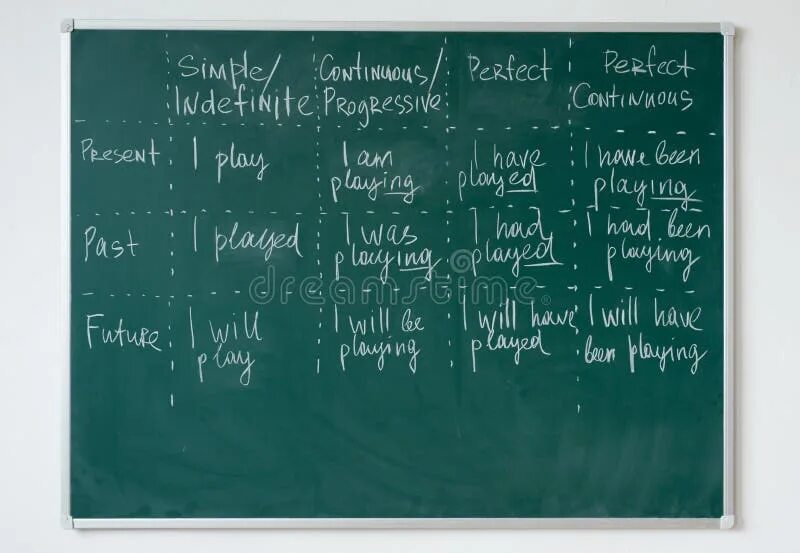 Simple/ Continuous/ Perfect Perfect
Indefinite Progressive Continuous
Present I play I am I have I have been
playing played playing
Past I played I was I had I had been
playing played playing
Future I will I will be I will have I will have
play playing played been playing
dreamstime.com